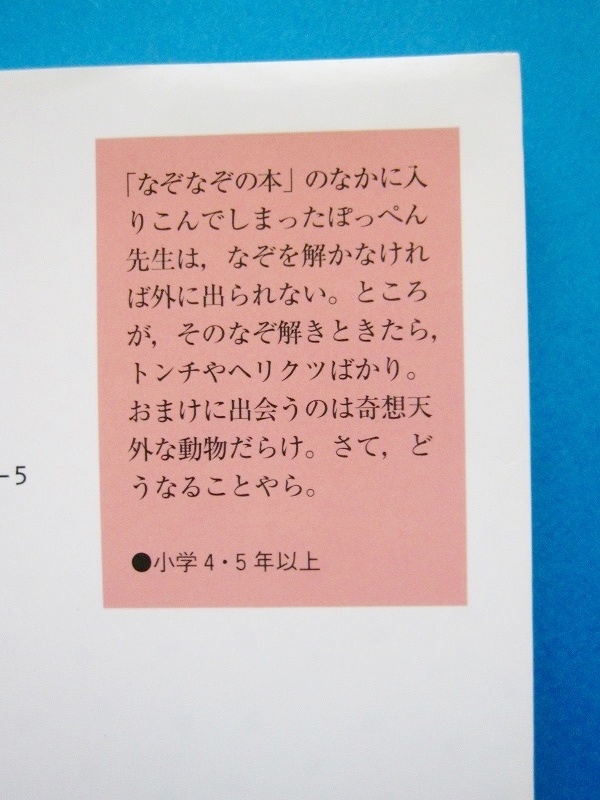 「なぞなぞの本」のなかに入
りこんでしまったぽっぺん
先生は，なぞを解かなけれ
ば外に出られない。ところ
が，そのなぞ解きときたら，
トンチやヘリクツばかり。
おまけに出会うのは奇想天
外な動物だらけ。さて，ど
うなることやら。
-5
●小学4・5年以上